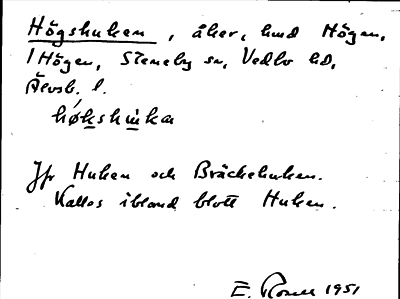 Högshuken, åker, hmd Högen,
1 Högen, Steneby sn, Vedbo hd,
Älvsb. l.
Jfr Huken och Bräckehuken.
Kallas ibland blott Huken.
E. 1951